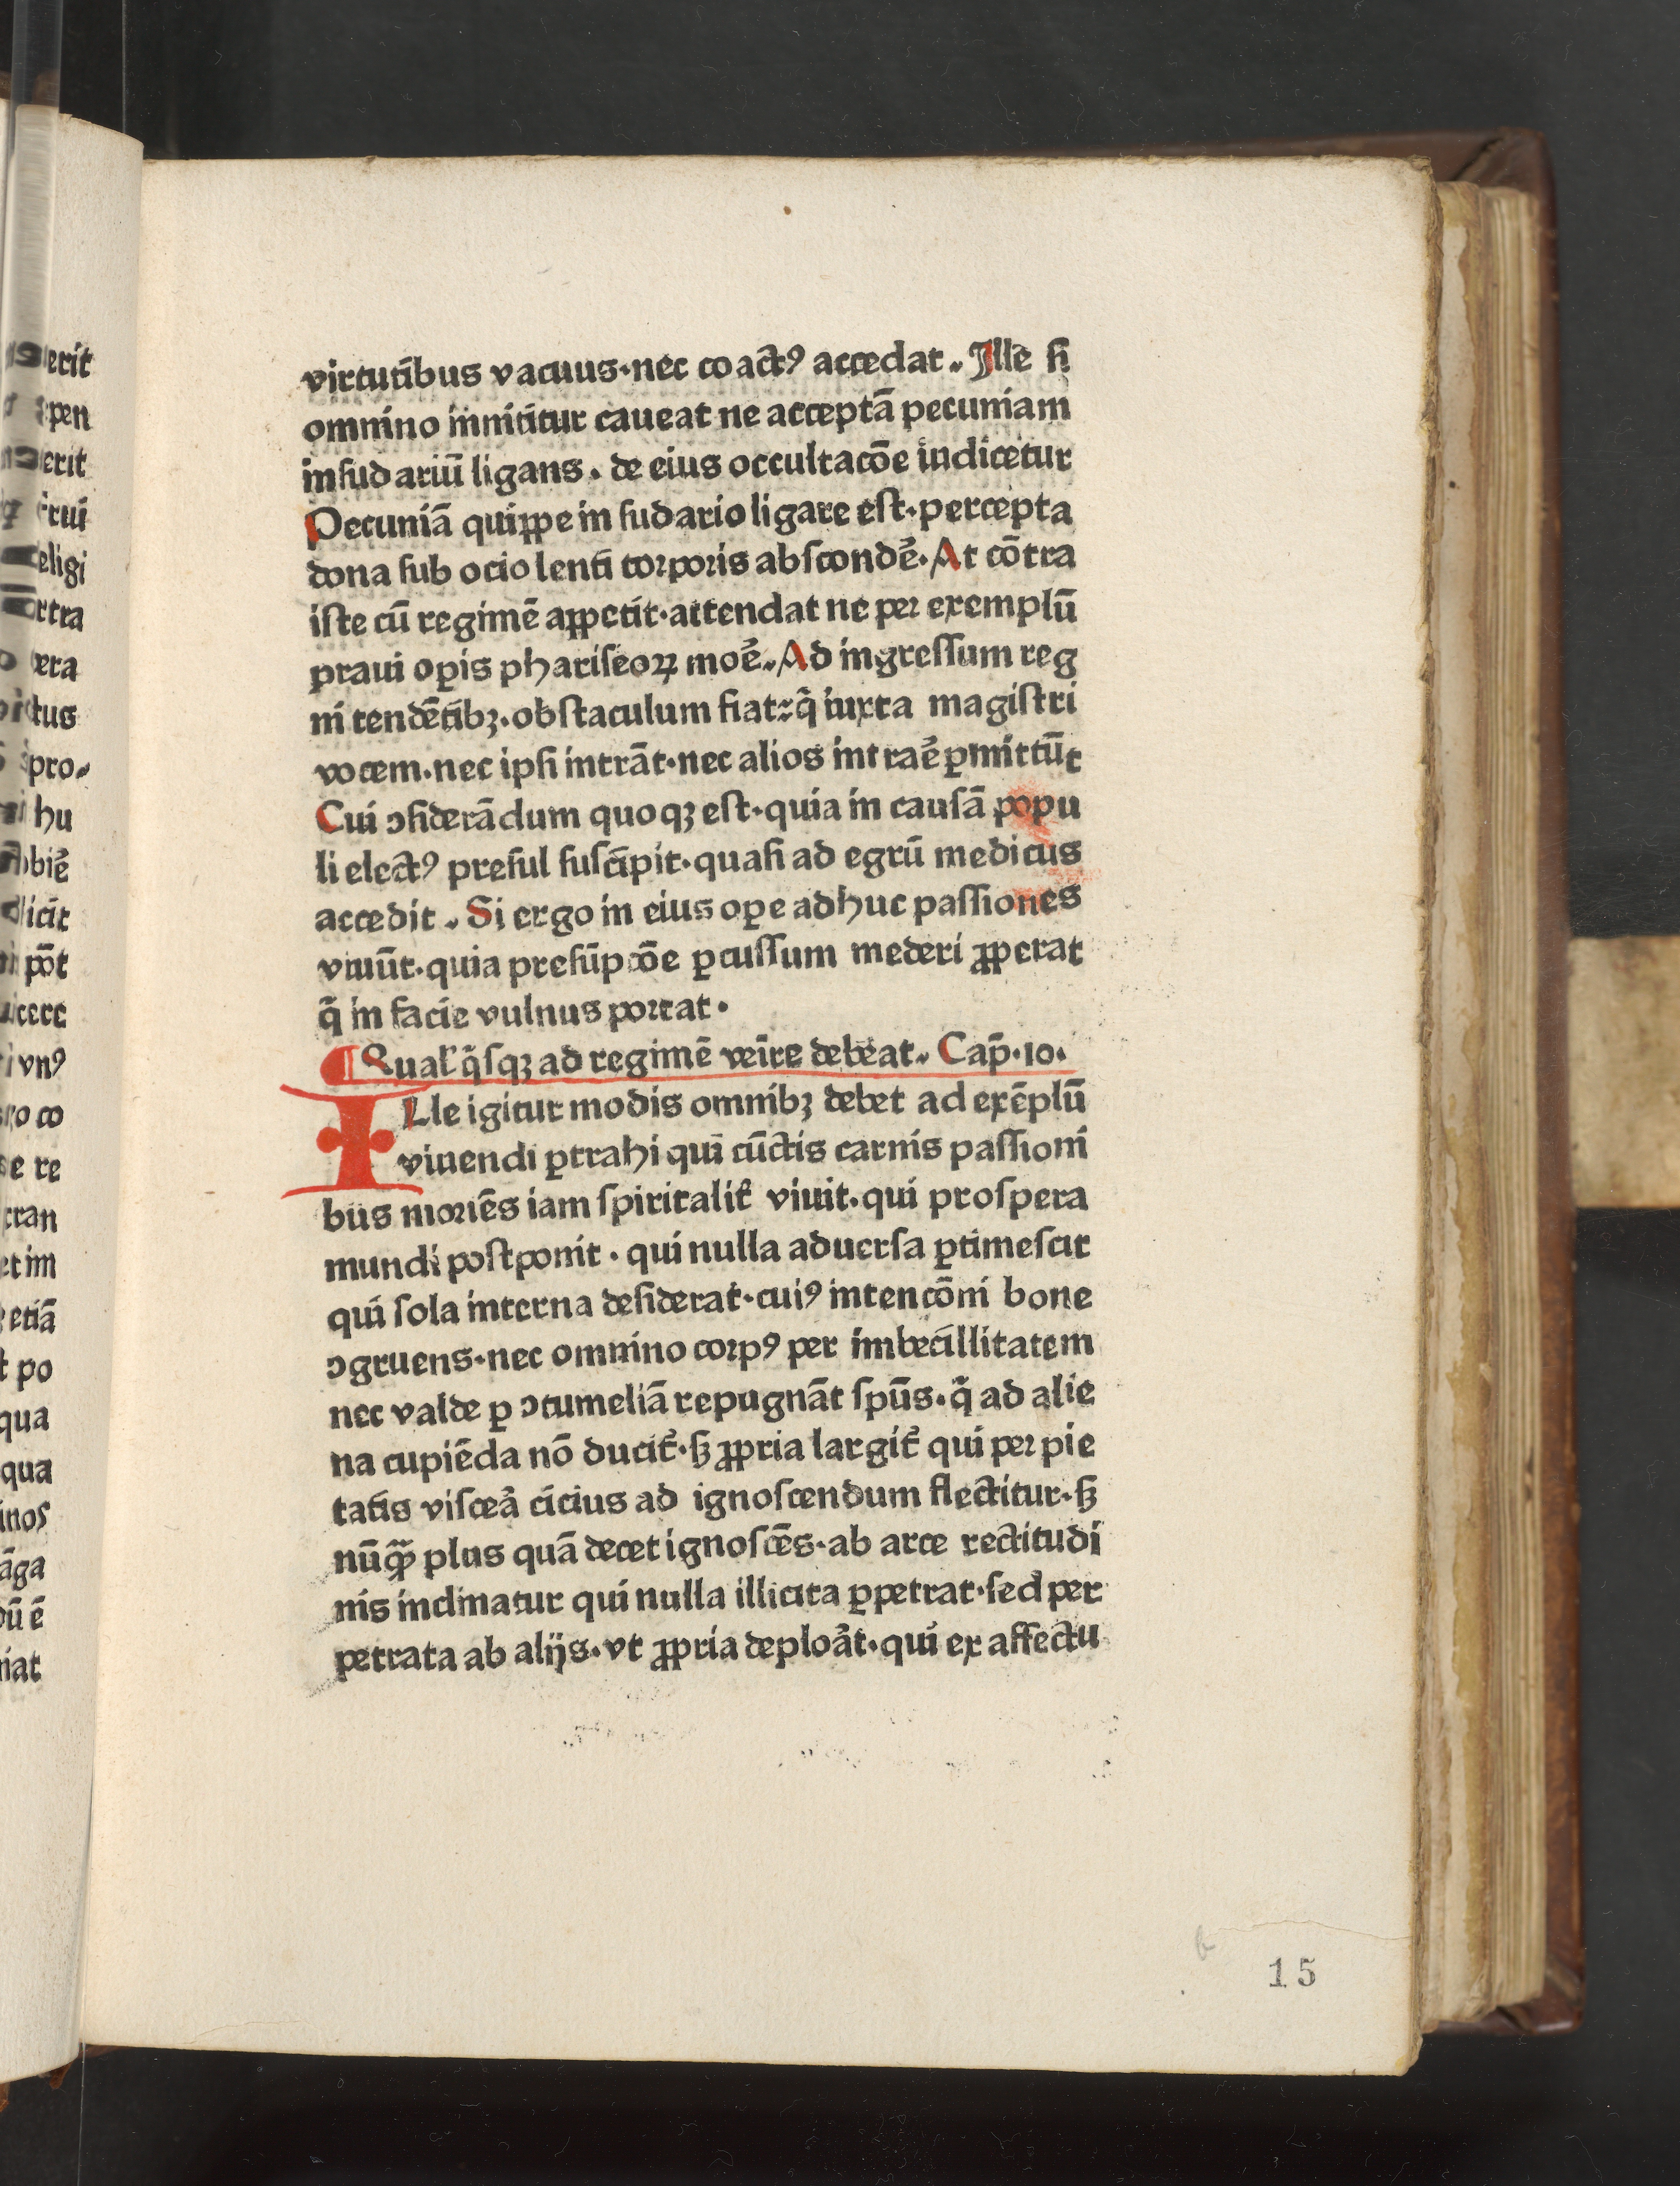 virtutibus vacuus·nec coactꝰ accedat. Ille ſi
omnino innititur caueat ne acceptā pecuniam
in ſudariū ligans. de eius occultacōe iudicetur
Pecuniā quippe in ſudario ligare eſt·percepta
dona ſub ocio lenti torporis abſcondē̉. At cōtra
iſte cū regimē appetit·attendat ne per exemplū
praui oꝑis phariſeoꝝ moē̉. Ad ingreſſum reg
ni tendētibꝫ·obſtaculum fiat: q̄ iuxta magiſtri
vocem·nec ipſi intrāt·nec alios intraē̉ ꝑmittūt
Cui ↄſiderādum quoqꝫ eſt·quia in cauſā popu
li electꝰ preſul ſuſcipit·quaſi ad egrū medicus
accedit. Si ergo in eius oꝑe adhuc paſſiones
viuūt·quia preſūpcōe ꝑcuſſum mederi ꝓperat
q̄ in facie vulnus portat·
¶ Qualꝰ q̄ſqꝫ ad regimē veīre debeat. Cap̄·10·
ILle igitur modis omnibꝫ debet ad exēplū
viuendi ꝑtrahi qui cūctis carnis paſſioni
bus moriēs iam ſpiritalit̉ viuit·qui proſpera
mundi poſtponit·qui nulla aduerſa ꝑtimeſcit
qui ſola interna deſiderat·cuiꝰ intencōni bone
ↄgruens·nec omnino corpꝰ per imbecillitatem
nec valde ꝑ ↄtumeliā repugnāt ſpūs·q̄ ad alie
na cupiēda nō ducit̉·ſꝫ ꝓpria largit̉ qui per pie
tatis viſceả cicius ad ignoſcendum flectitur·ſꝫ
nūꝙ̄ plus quā decet ignoſcēs·ab arce rectitudi
nis inclinatur qui nulla illicita ꝑpetrat·ſed per
petrata ab alijs·vt ꝓpria deploảt·qui ex affectu
15
erit
pen
erit
rui
eligi
rtra
era
tus
pro
hu
biē̉
licit
pōt
cere
vnꝰ
o co
e re
tran
et im
etiā
t po
qua
qua
inos
āga
ū ē
iat